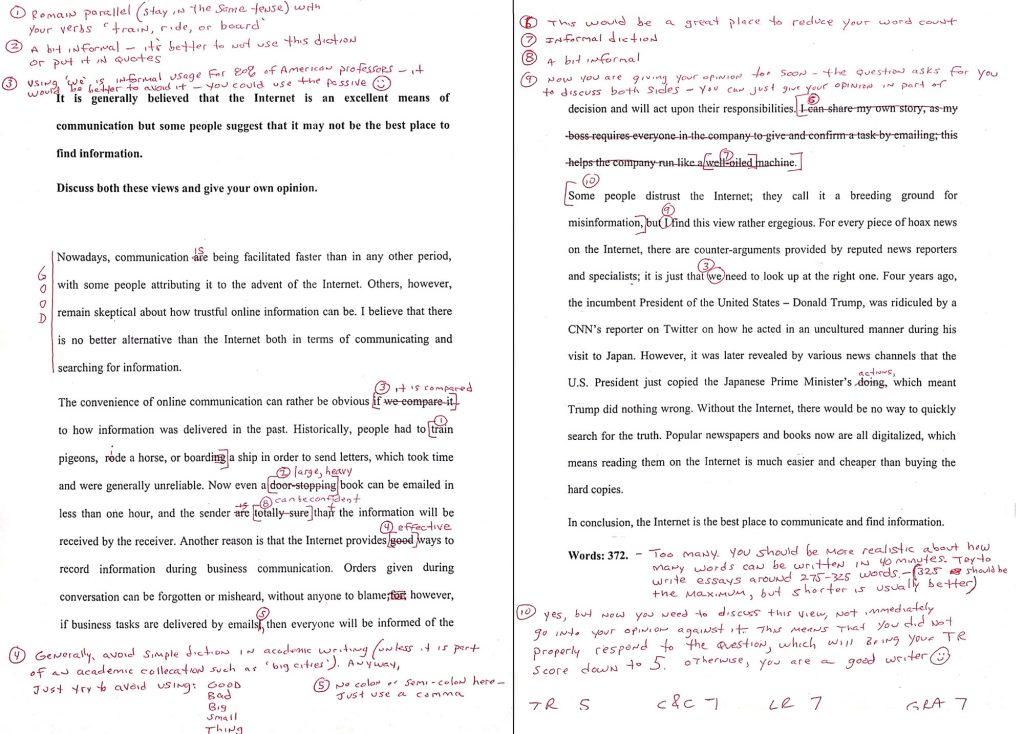 ① Remain parallel (stay in the same tense) with
your verbs "train, ride, or board"
② A bit informal – it's better to not use this diction
or put it in quotes
③ Using 'we' is informal usage for 80% of American professors – it
would be better to avoid it – you could use the passive ☺
It is generally believed that the Internet is an excellent means of
communication but some people suggest that it may not be the best place to
find information.
Discuss both these views and give your own opinion.
GOOD
is
Nowadays, communication are being facilitated faster than in any other period,
with some people attributing it to the advent of the Internet. Others, however,
remain skeptical about how trustful online information can be. I believe that there
is no better alternative than the Internet both in terms of communicating and
searching for information.
③ it is compared
The convenience of online communication can rather be obvious [if we compare it]
①
to how information was delivered in the past. Historically, people had to [train
pigeons, rode a horse, or boarding] a ship in order to send letters, which took time
② large, heavy
and were generally unreliable. Now even a [door-stopping] book can be emailed in
⑧ can be confident
is
less than one hour, and the sender are [totally sure] that the information will be
④ effective
received by the receiver. Another reason is that the Internet provides [good] ways to
record information during business communication. Orders given during
conversation can be forgotten or misheard, without anyone to blame; for, however,
⑤
if business tasks are delivered by emails, then everyone will be informed of the
④ Generally, avoid simple diction in academic writing (unless it is part
of an academic collocation such as 'big cities'). Anyway,
Just try to avoid using: Good
Bad
Big
Small
Thing
⑤ No colon or semi-colon here –
Just use a comma
⑥ This would be a great place to reduce your word count
⑦ Informal diction
⑧ A bit informal
⑨ Now you are giving your opinion too soon – the question asks for you
to discuss both sides – you can just give your opinion in part of
⑥
decision and will act upon their responsibilities. [I can share my own story, as my
boss requires everyone in the company to give and confirm a task by emailing; this
⑦
helps the company run like a [well-oiled] machine.]
⑩
[Some people distrust the Internet; they call it a breeding ground for
⑨
misinformation,] but I find this view rather ergegious. For every piece of hoax news
on the Internet, there are counter-arguments provided by reputed news reporters
③
and specialists; it is just that we need to look up at the right one. Four years ago,
the incumbent President of the United States – Donald Trump, was ridiculed by a
CNN's reporter on Twitter on how he acted in an uncultured manner during his
visit to Japan. However, it was later revealed by various news channels that the
actions,
U.S. President just copied the Japanese Prime Minister's doing, which meant
Trump did nothing wrong. Without the Internet, there would be no way to quickly
search for the truth. Popular newspapers and books now are all digitalized, which
means reading them on the Internet is much easier and cheaper than buying the
hard copies.
In conclusion, the Internet is the best place to communicate and find information.
Words: 372. – Too many. You should be more realistic about how
many words can be written in 40 minutes. Try to
write essays around 275-325 words. – (325 should be
the maximum, but shorter is usually better)
⑩ Yes, but now you need to discuss this view, not immediately
go into your opinion against it. This means that you did not
properly respond to the question, which will bring your TR
score down to 5. Otherwise, you are a good writer ☺
TR 5 C&C 7 LR 7 GRA 7